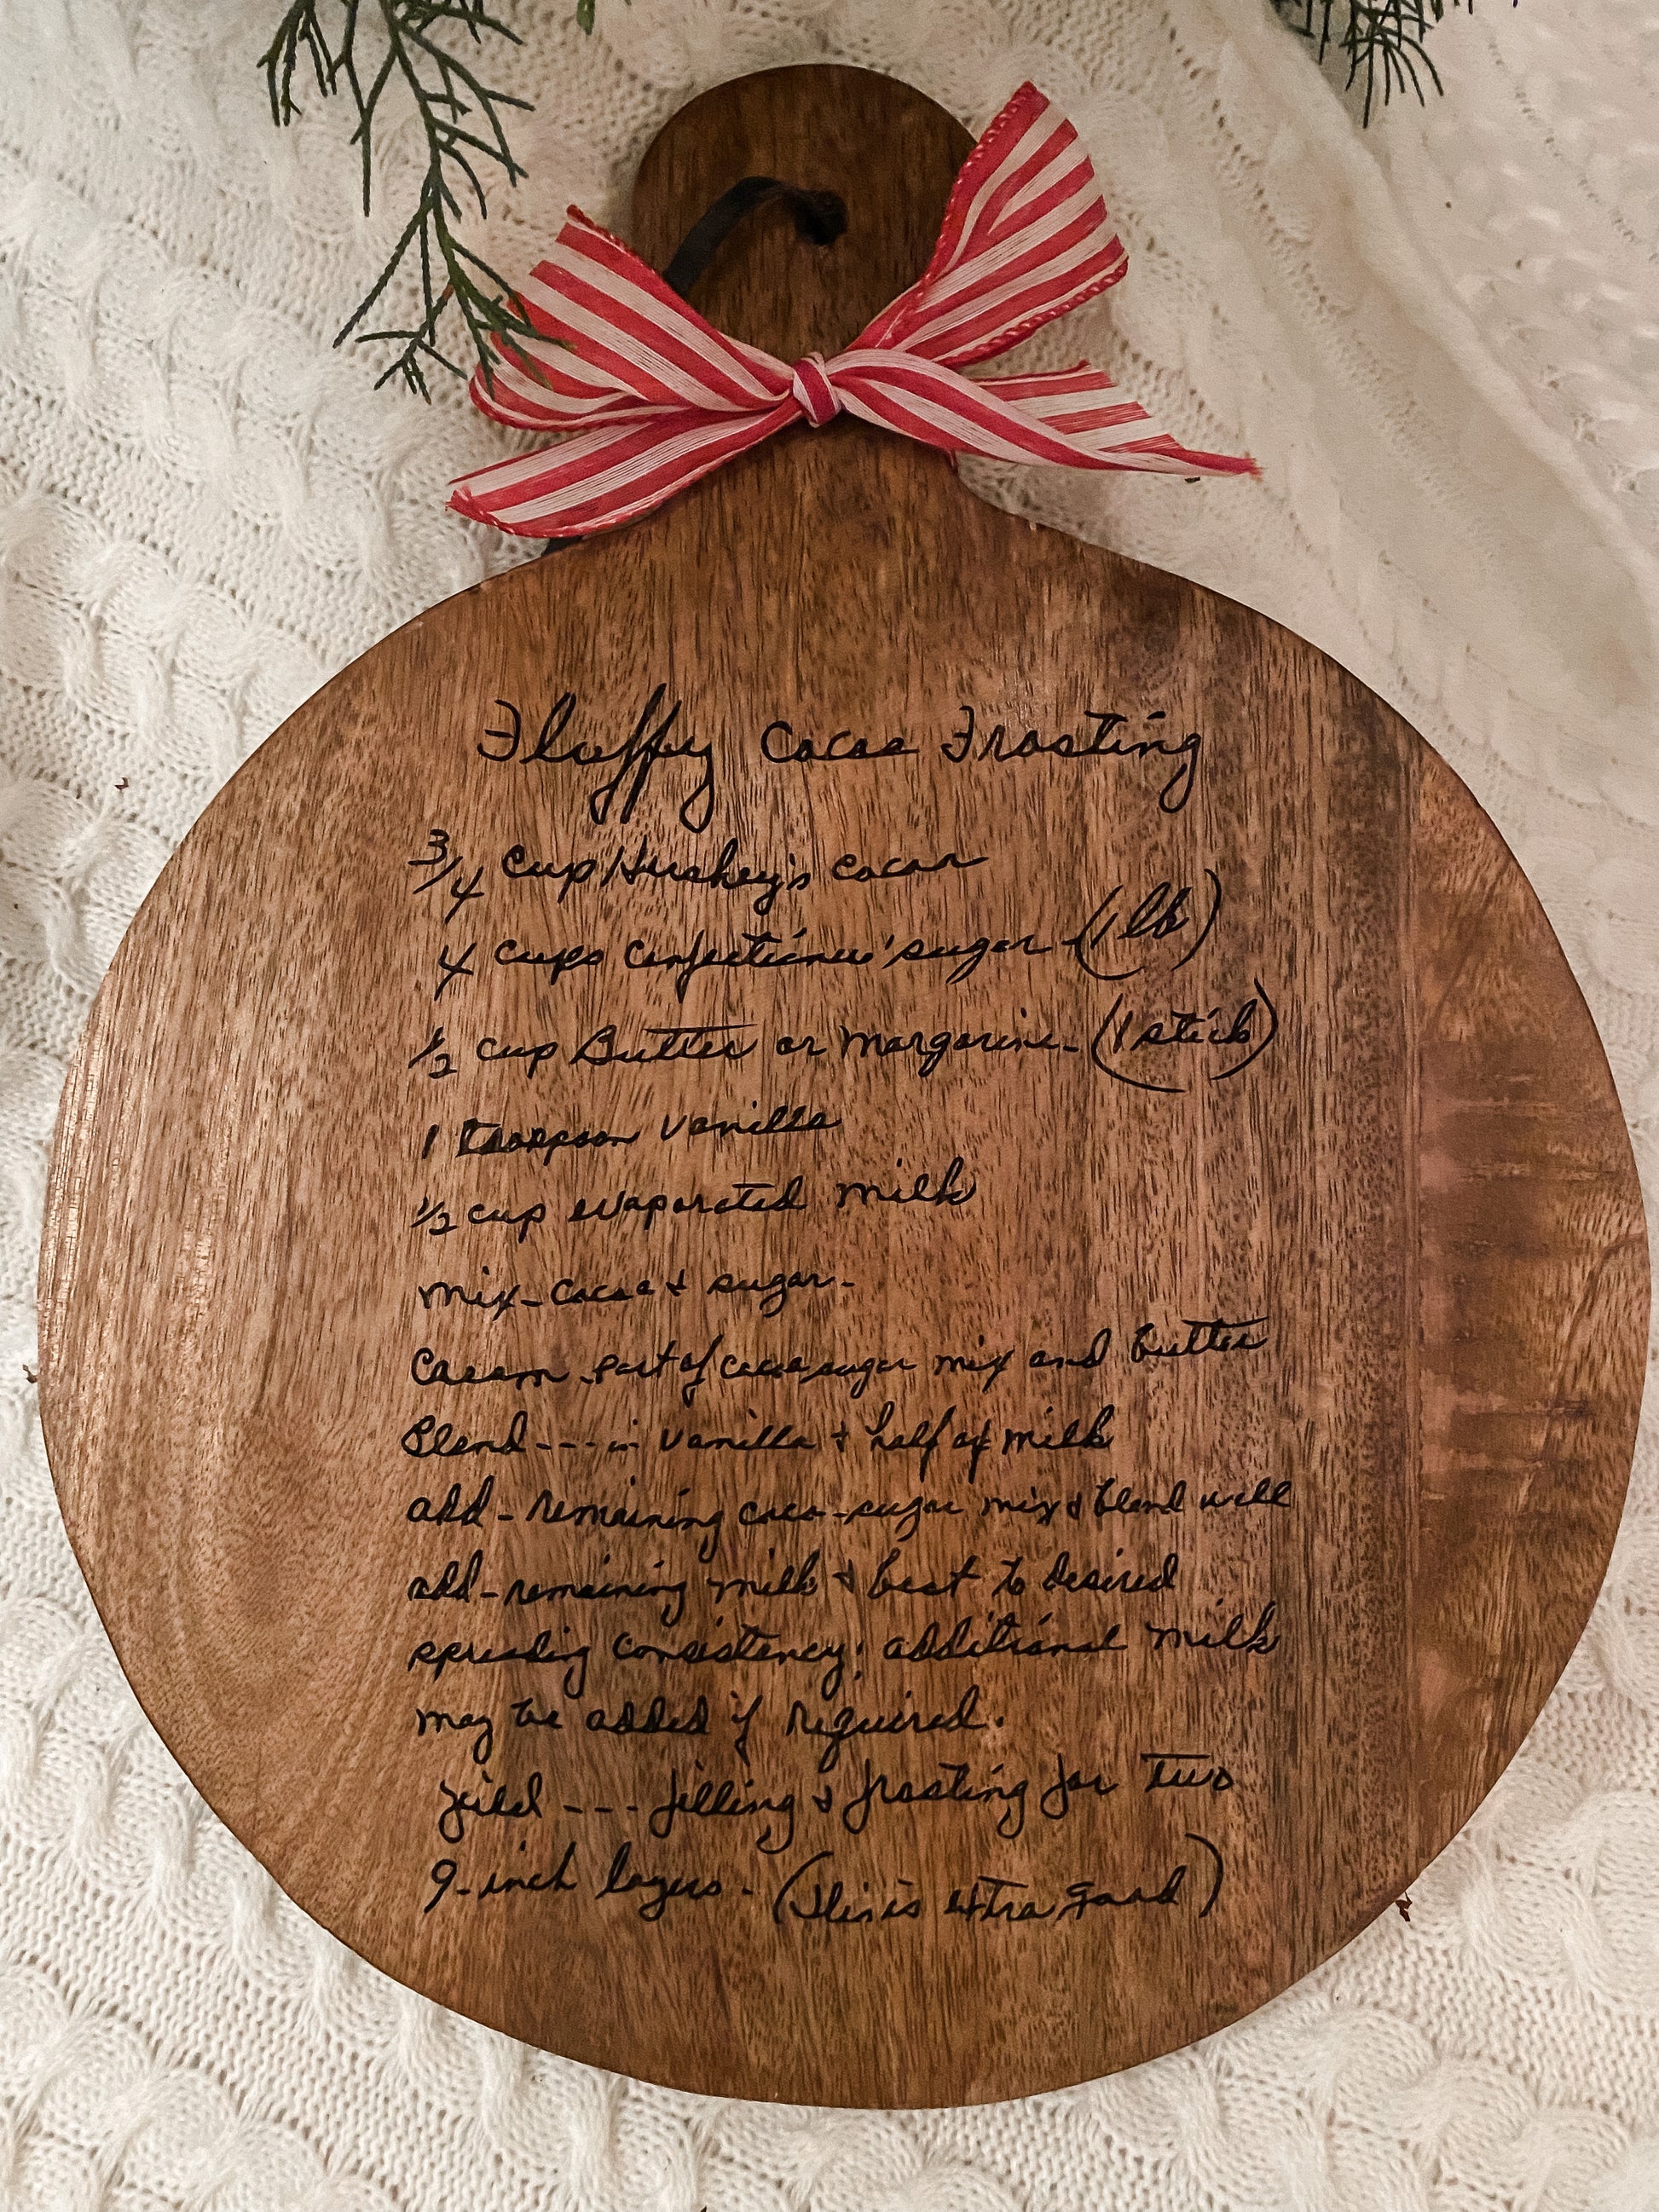 Fluffy Cocoa Frosting
3/4 cup Hershey's cocoa
4 cups confectioners' sugar - (1 lb)
1/2 cup Butter or Margarine - (1 stick)
1 teaspoon vanilla
1/2 cup evaporated milk
mix - cocoa & sugar -
Cream - part of cocoa sugar mix and butter
Blend --- in vanilla & half of milk
add - remaining coco - sugar mix & blend well
add - remaining milk & beat to desired
spreading consistency; additional milk
may be added if required.
yield --- filling & frosting for two
9-inch layers - (this is extra good)